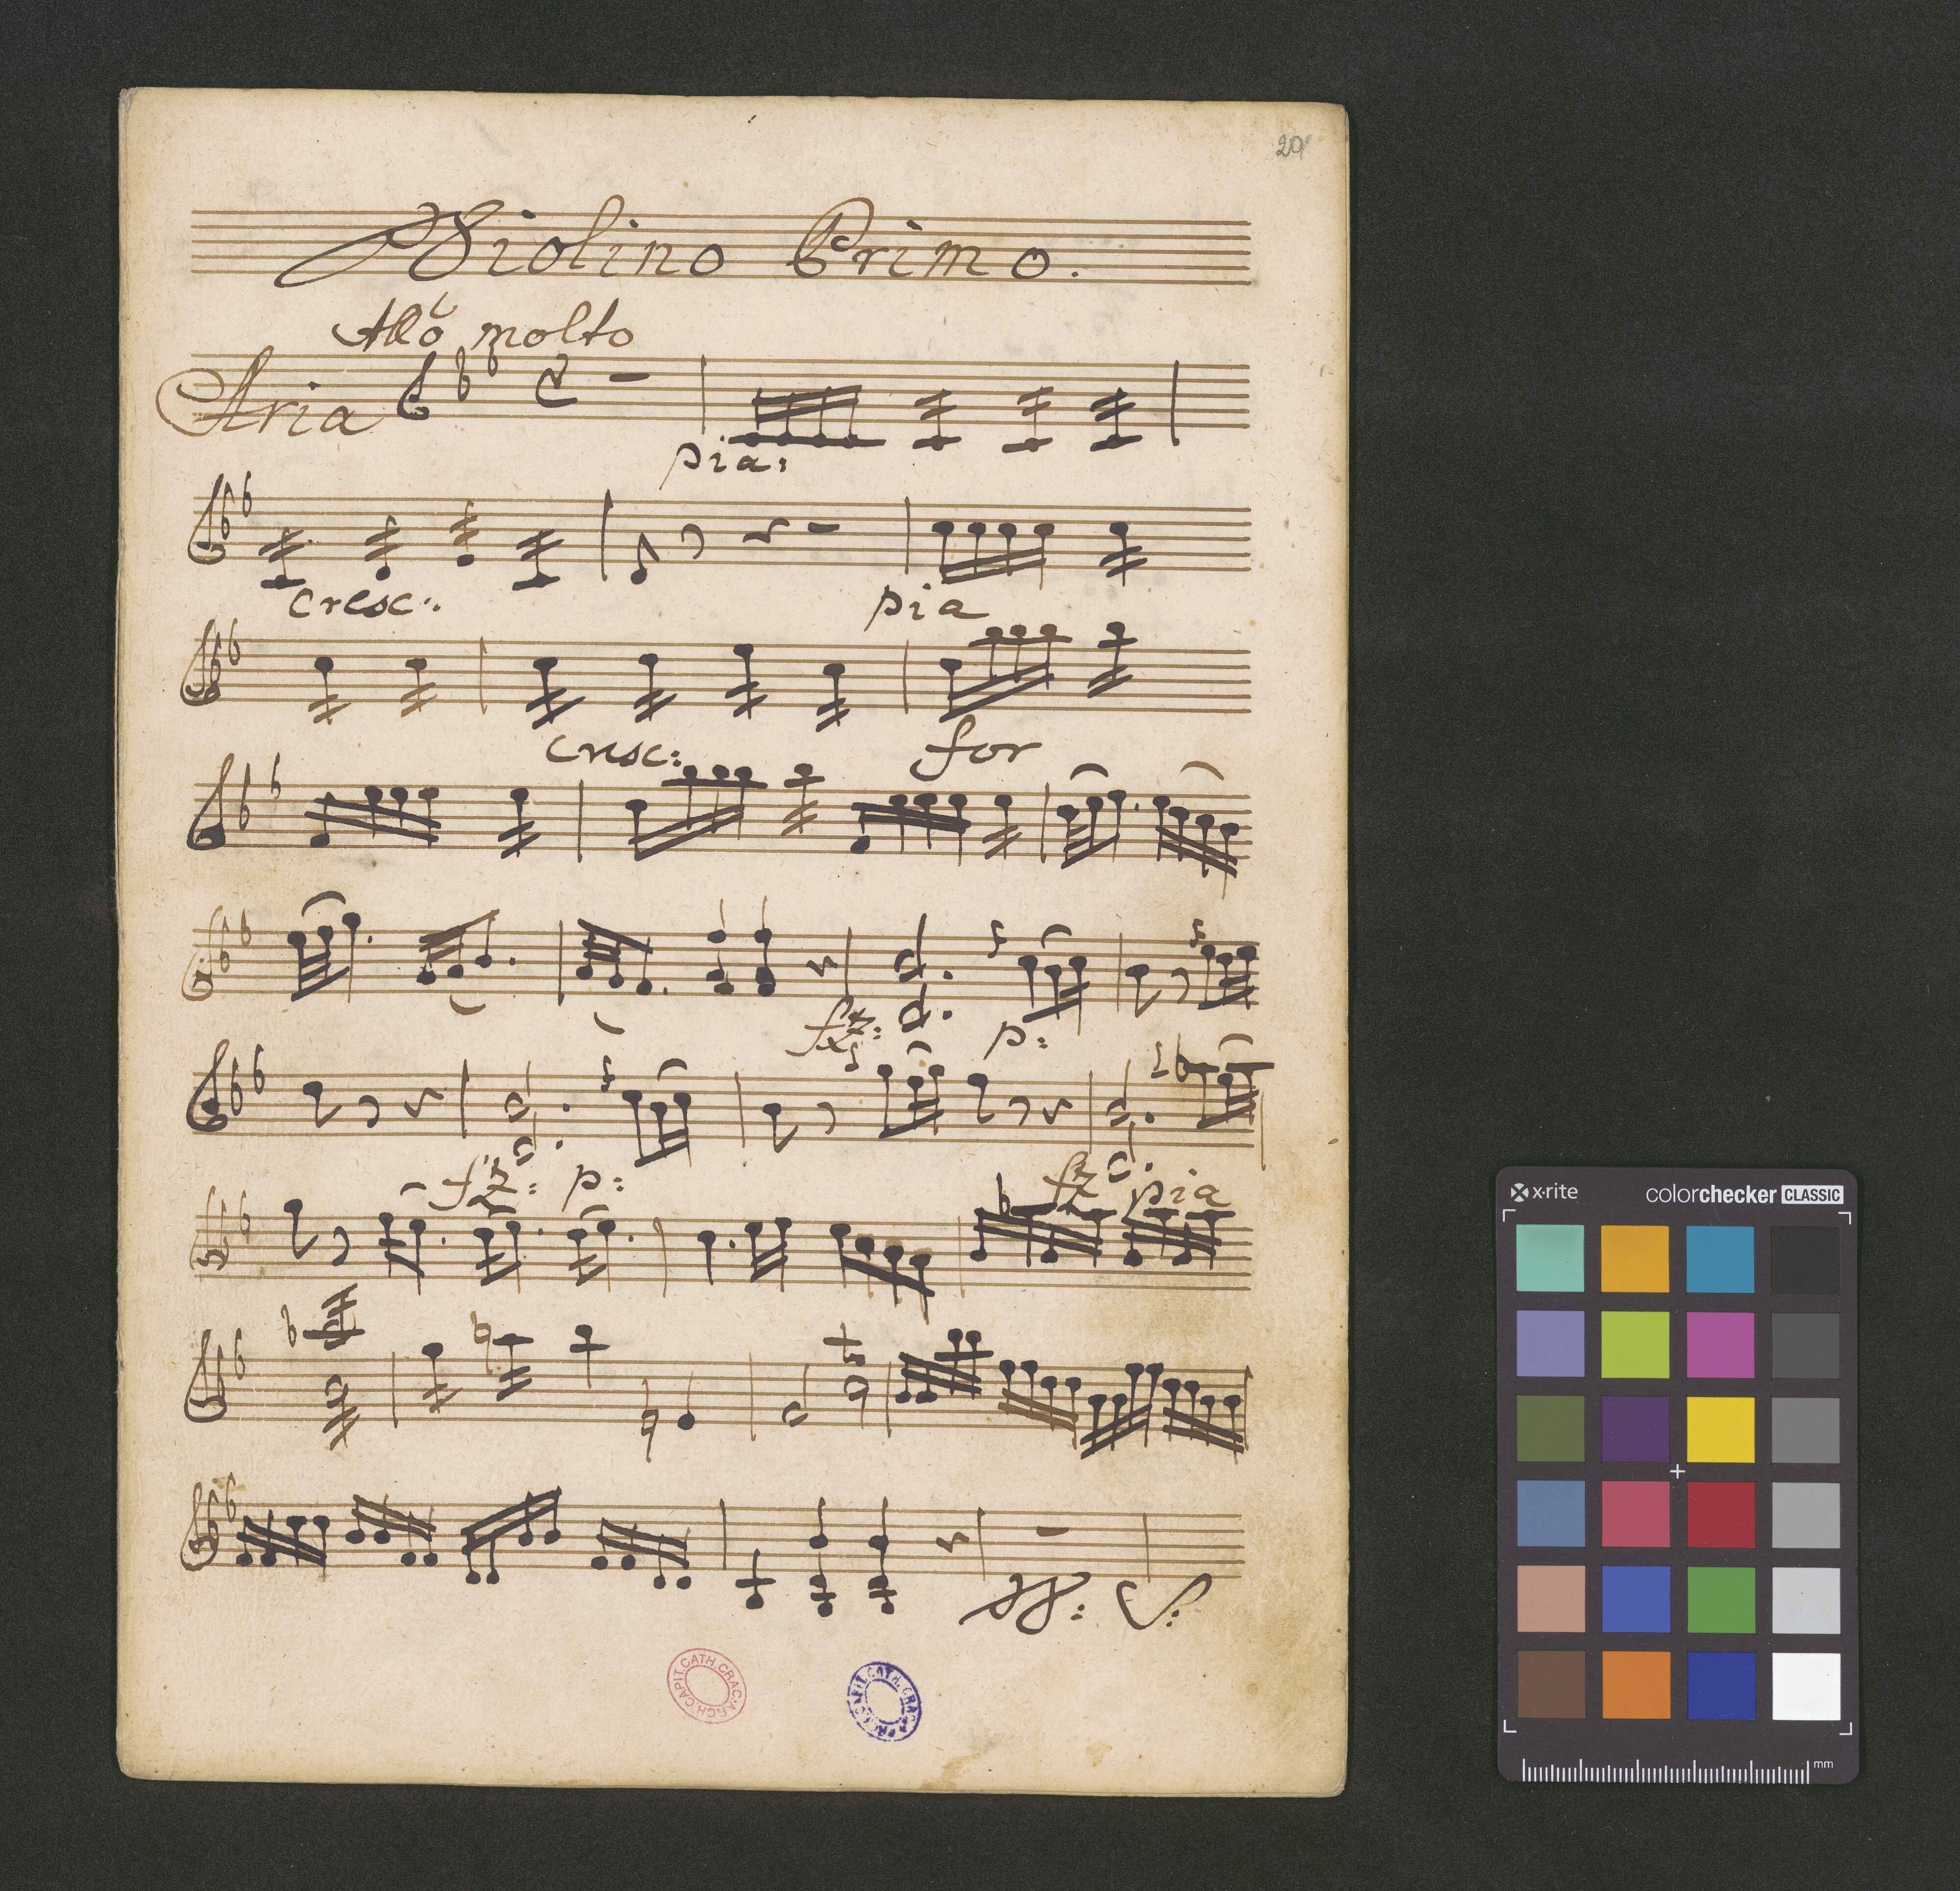 20
Violino Primo.
Allo molto
Aria
pia:
cresc:.
pia
cresc:
for
fz:
p:
fz:
p:
fz
pia
V: S:
ARCH.CAPIT.CATH.CRAC.
x·rite
colorchecker CLASSIC
mm